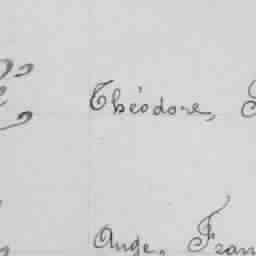 Théodore,
Ange, Fran